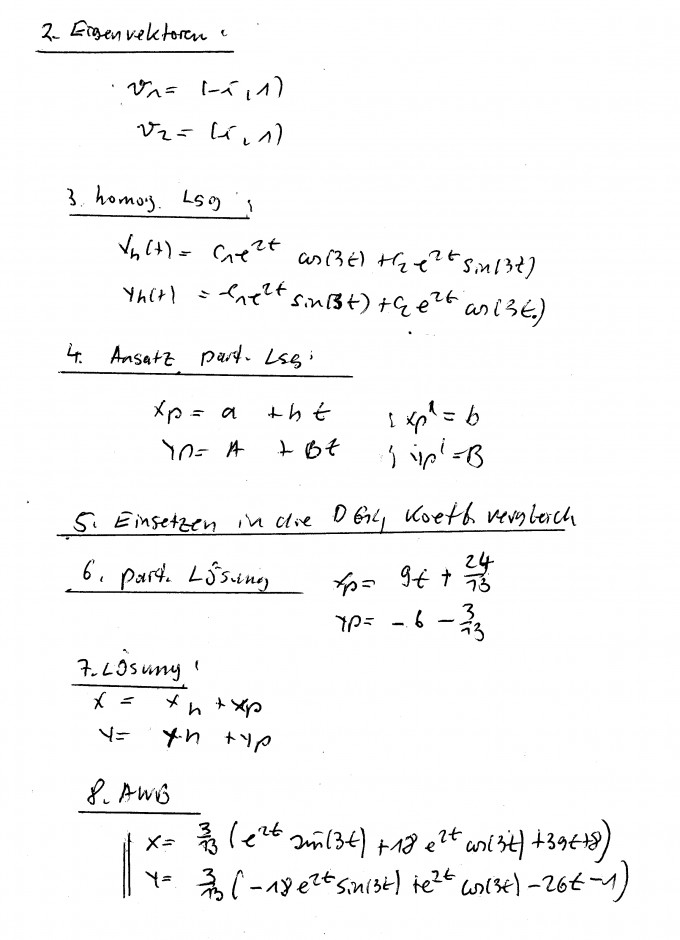 2. Eigenvektoren :
v₁ = (-i, 1)
v₂ = (i, 1)
3. homog. Lsg :
xh(t) = C₁e^2t cos(3t) + C₂ e^2t sin(3t)
yh(t) = -C₁e^2t sin(3t) + C₂ e^2t cos(3t)
4. Ansatz part. Lsg :
xp = a + b t ; xp' = b
yp = A + Bt ; yp' = B
5. Einsetzen in die DGL, Koeffb. vergleich
6. part. Lösung xp = 9t + 24/13
yp = -6 - 3/13
7. Lösung :
x = xh + xp
y = yh + yp
8. AWB
x = 3/13 (e^2t sin(3t) + 18 e^2t cos(3t) + 39t + 8)
y = 3/13 (-18 e^2t sin(3t) + e^2t cos(3t) - 26t - 1)